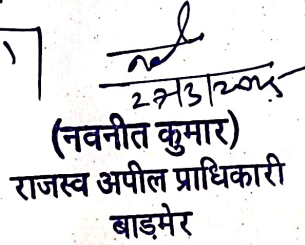 27/3/2025
(नवनीत कुमार)
राजस्व अपील प्राधिकारी
बाड़मेर